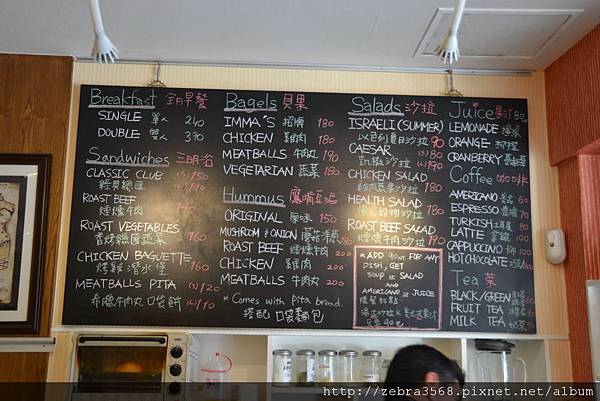 Breakfast 全日早餐
SINGLE 單人 240
DOUBLE 雙人 390
Sandwiches 三明治
CLASSIC CLUB (S)/150
經典總匯 (L)/190
ROAST BEEF 140
煙燻牛肉
ROAST VEGETABLES
香烤總匯蔬菜 160
CHICKEN BAGUETTE
烤雞潛水堡 160
MEATBALLS PITA (S)/120
希臘牛肉丸口袋餅 (L)/190
Bagels 貝果
IMMA'S 招牌 180
CHICKEN 雞肉 180
MEATBALLS 牛肉丸 190
VEGETARIAN 蔬菜 180
Hummus 鷹嘴豆泥
ORIGINAL 原味 150
MUSHROOM & ONION 蘑菇洋蔥
ROAST BEEF 煙燻牛肉 200
CHICKEN 雞肉 200
MEATBALLS 牛肉丸 200
* Comes with Pita bread.
搭配口袋麵包
Salads 沙拉
ISRAELI (SUMMER)
以色列夏日沙拉 90
CAESAR (S) 90
凱撒沙拉 (L) 190
CHICKEN SALAD
雞肉蔬果沙拉 180
HEALTH SALAD
穀物沙拉 180
ROAST BEEF SALAD
煙燻牛肉沙拉 190
* ADD 90NT FOR ANY
DISH, GET
SOUP OR SALAD
AND
AMERICANO OR JUICE
加 90元
Juice 果汁 80
LEMONADE 檸檬
ORANGE 柳橙
CRANBERRY 蔓越莓
Coffee 咖啡
AMERICANO 美式
ESPRESSO 濃縮 70
TURKISH 土耳其
LATTE 拿鐵 100
CAPPUCCINO 卡布
HOT CHOCOLATE 巧克力
Tea 茶
BLACK/GREEN 60
FRUIT TEA
MILK TEA
album
http://zebra3568.pixnet.net/album